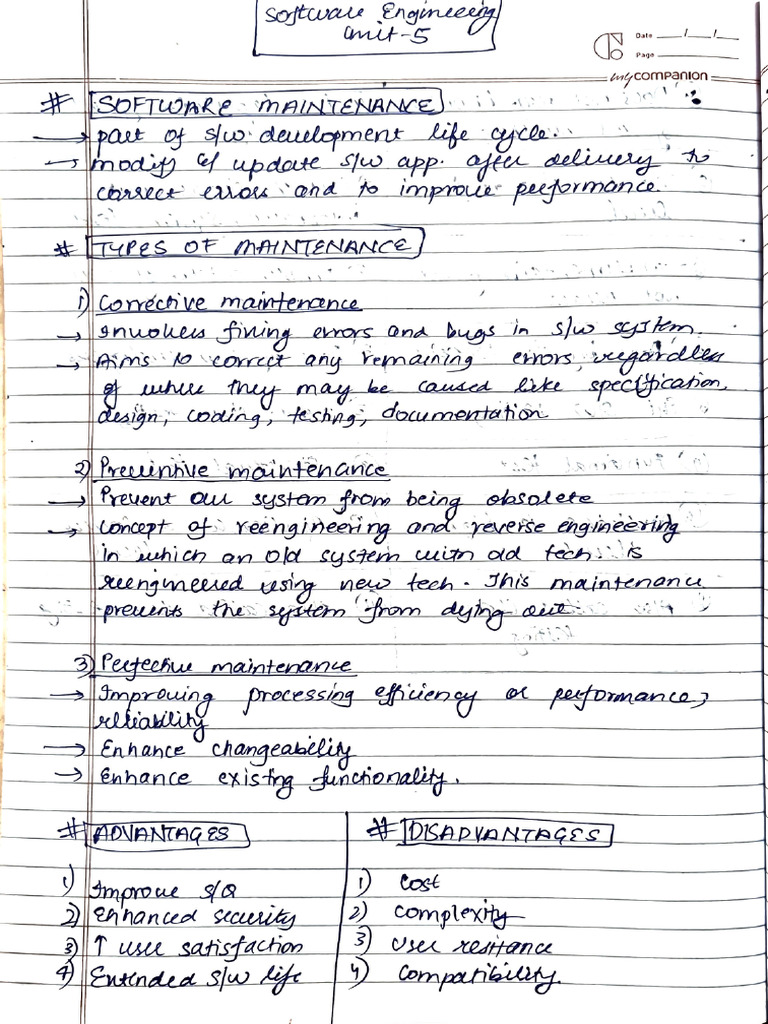 Software Engineering
Unit-5
Date __/__/__
Page
mycompanion
# SOFTWARE MAINTENANCE
→ part of s/w development life cycle.
→ modify & update s/w app. after delivery to
correct errors and to improve performance.
# TYPES OF MAINTENANCE
1) Corrective maintenance
→ Involves fixing errors and bugs in s/w system.
→ Aims to correct any remaining errors, regardless
of where they may be caused like specification,
design, coding, testing, documentation
2) Preventive maintenance
→ Prevent our system from being obsolete
→ concept of reengineering and reverse engineering
in which an old system with old tech. is
reengineered using new tech. This maintenance
prevents the system from dying out.
3) Perfective maintenance
→ Improving processing efficiency or performance,
reliability
→ Enhance changeability
→ Enhance existing functionality.
# ADVANTAGES
1) Improve S/Q
2) Enhanced security
3) ↑ user satisfaction
4) Extended S/w life
# DISADVANTAGES
1) Cost
2) Complexity
3) User resitance
4) Compatibility.